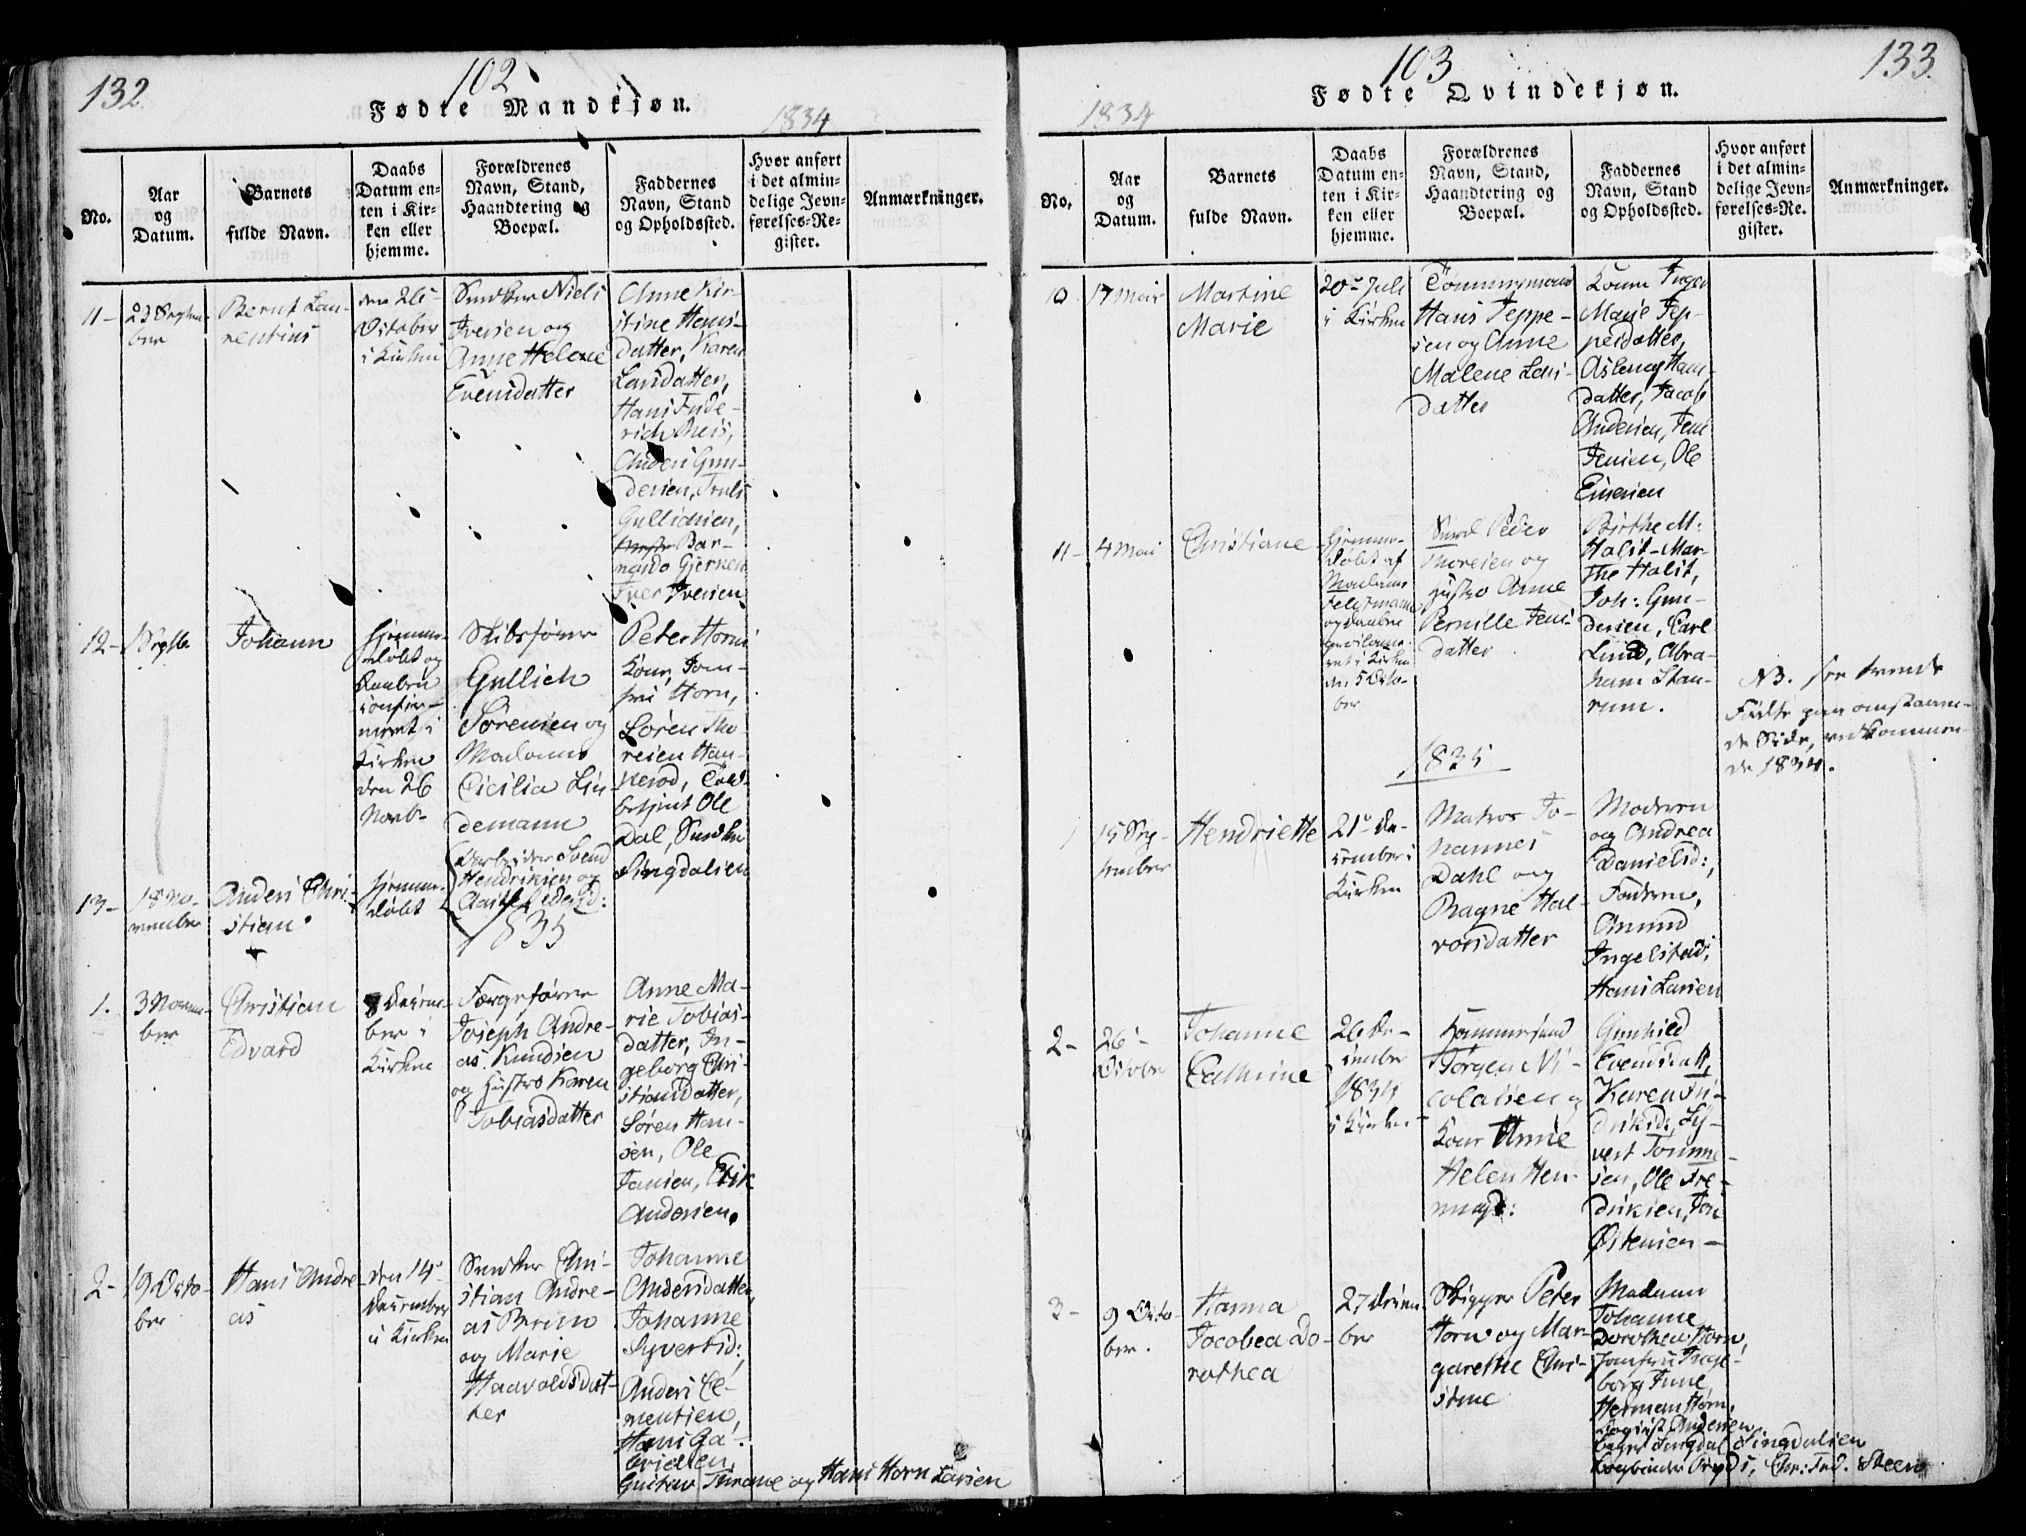 132
102
Fødte Mandkjøn.
1834
No.
Aar
og
Datum.
Barnets
fulde Navn.
Daabs
Datum en-
ten i Kir-
ken eller
hjemme.
Forældrenes
Navn, Stand,
Haandtering og
Boepæl.
Faddernes
Navn, Stand
og Opholdssted.
Hvor anført
i det almin-
delige Jevn-
førelses-Re-
gister.
Anmærkninger.
11-
23 Septem-
ber
Bernt Lau-
rentius
den 26
October
i Kirken
Snedker Niels
Iversen og
Anne Helene
Evensdatter
Anne Kir-
stine Hans-
datter, Karen
Larsdatter,
Hans Fride-
rich
Anders Gun-
dersen, Truls
Gullichsen,
Iver Iversen
12-
Johann
hjemme-
døbt og
Daaben
confir-
meret i
Kirken
den 26
Novb-
Skibsfører
Gullich
Sørensen og
Madame
Cicilia Lin-
demann
Peter Horns
Kone, Jom-
fru Horn,
Søren Tho-
resen Han-
nevod,
betjent Ole
Dal, Snedker
Singdalsen
13-
18 No-
vember
Anders Chri-
stian
hjemme-
døbt
Arbeider Svend
Hendriksen og
1835
1.
3 Novem-
ber
Christian
Edvard
8 Decem-
ber i
Kirken
Færgefører
Joseph Andre-
as Knudsen
og Hustro Karen
Tobiasdatter
Anne Ma-
rie Tobias-
datter, In-
geborg Chri-
stiansdatter,
Søren Han-
sen, Ole
Jansen, Erik
Andersen.
2-
19 Octo-
ber
Hans Andre-
as
den 14
December
i Kirken
Snedker Chri-
stian Andre-
as Bruun
og Marie
Haavoldsdat-
ter
Johanne
Andersdatter,
Johanne
Syvertsd:,
Anders Cle-
mentsen,
Hans Ga-
brielsen,
Gustav Throne og Hans Horn Larsen
103
133
Fødte Qvindekjøn.
1834
No.
Aar
og
Datum.
Barnets
fulde Navn.
Daabs
Datum en-
ten i Kir-
ken eller
hjemme.
Forældrenes
Navn, Stand,
Haandtering og
Boepæl.
Faddernes
Navn, Stand
og Opholdssted.
Hvor anført
i det almin-
delige Jevn-
førelses-Re-
gister.
Anmærkninger.
10
17 Mai
Martine
Marie
20 Juli
i Kirken
Tømmermand
Hans Jeppe-
sen og Anne
Malene Lars-
datter
Konen Inger
Marie Jep-
pesdatter,
Aslaug Hans-
datter, Jacob
Andersen, Jens
Jensen, Ole
Einersen
11-
4 Mai
Christiane
hjemme-
døbt af
Madame
og Daaben
i Kirken
den 5 Octo-
ber
Smed Peder
Thoresen og
Hustro Anne
Pernille Jens-
datter
Birthe M:
Halst - Mar-
the Halst,
Joh: Gun-
dersen, Carl
Lund, Abra-
ham Stau-
rum.
NB. see trende
Fødte paa omstaaen-
de Side, vedkommen-
de 1834.
1835
1
15 Sep-
tember
Hendriette
21 De-
cember i
Kirken
Matros Jo-
hannes
Dahl og
Ragne Hal-
vorsdatter
Moderen
og Andrea
Danielsd:,
Faderen,
Amund
Ingelstad,
Hans Larsen
2-
26
October
Johanne
Cathrine
26 De-
cember
1834
i Kirken
Jørgen Ni-
colaisen og
Kone Anne
Helen Hen-
Gunhild
Evensdatt,
Karen Fri-
driksd:, Sy-
vert Tomme-
sen, Ole Fre-
driksen, Jon
Østensen -
3-
9 Octo-
ber.
Hanna
Jacobea Do-
rothea
27 Decem-
ber
Skipper Peter
Horn og Mar-
garethe Chri-
stine
Madame
Johanne
Dorothea Horn,
Jomfru Inge-
borg June
Herman Horn,
Andersen
Singdalsen
Chr: Fred. Steen